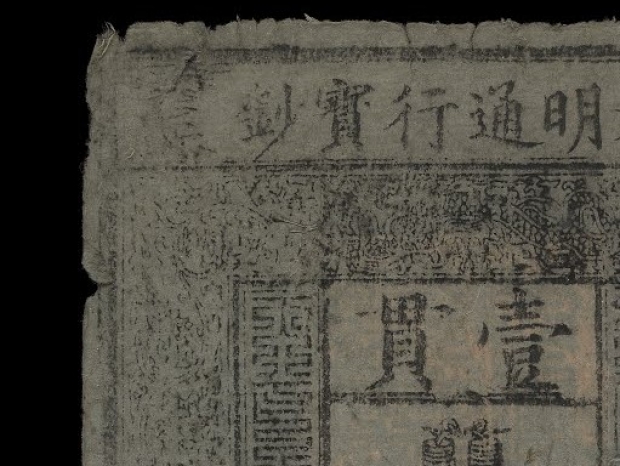 明通行寶鈔
壹貫